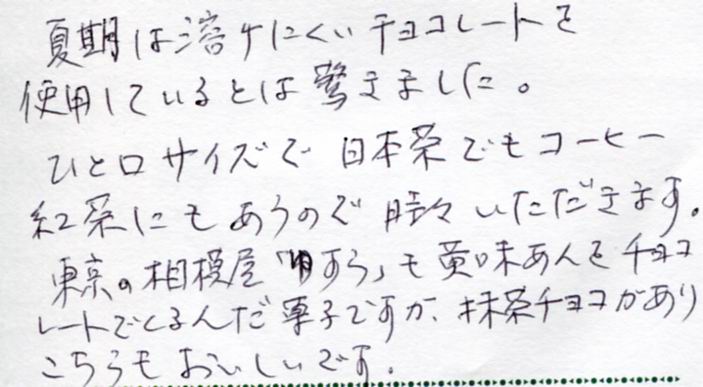 夏期は溶けにくいチョコレートを
使用しているとは驚きました。
ひと口サイズで 日本茶でもコーヒー
紅茶にもあうので 時々いただきます。
東京の相模屋「　すら」も黄味あんをチョコ
レートでくるんだ菓子ですが、抹茶チョコがあり
こちらもおいしいです.